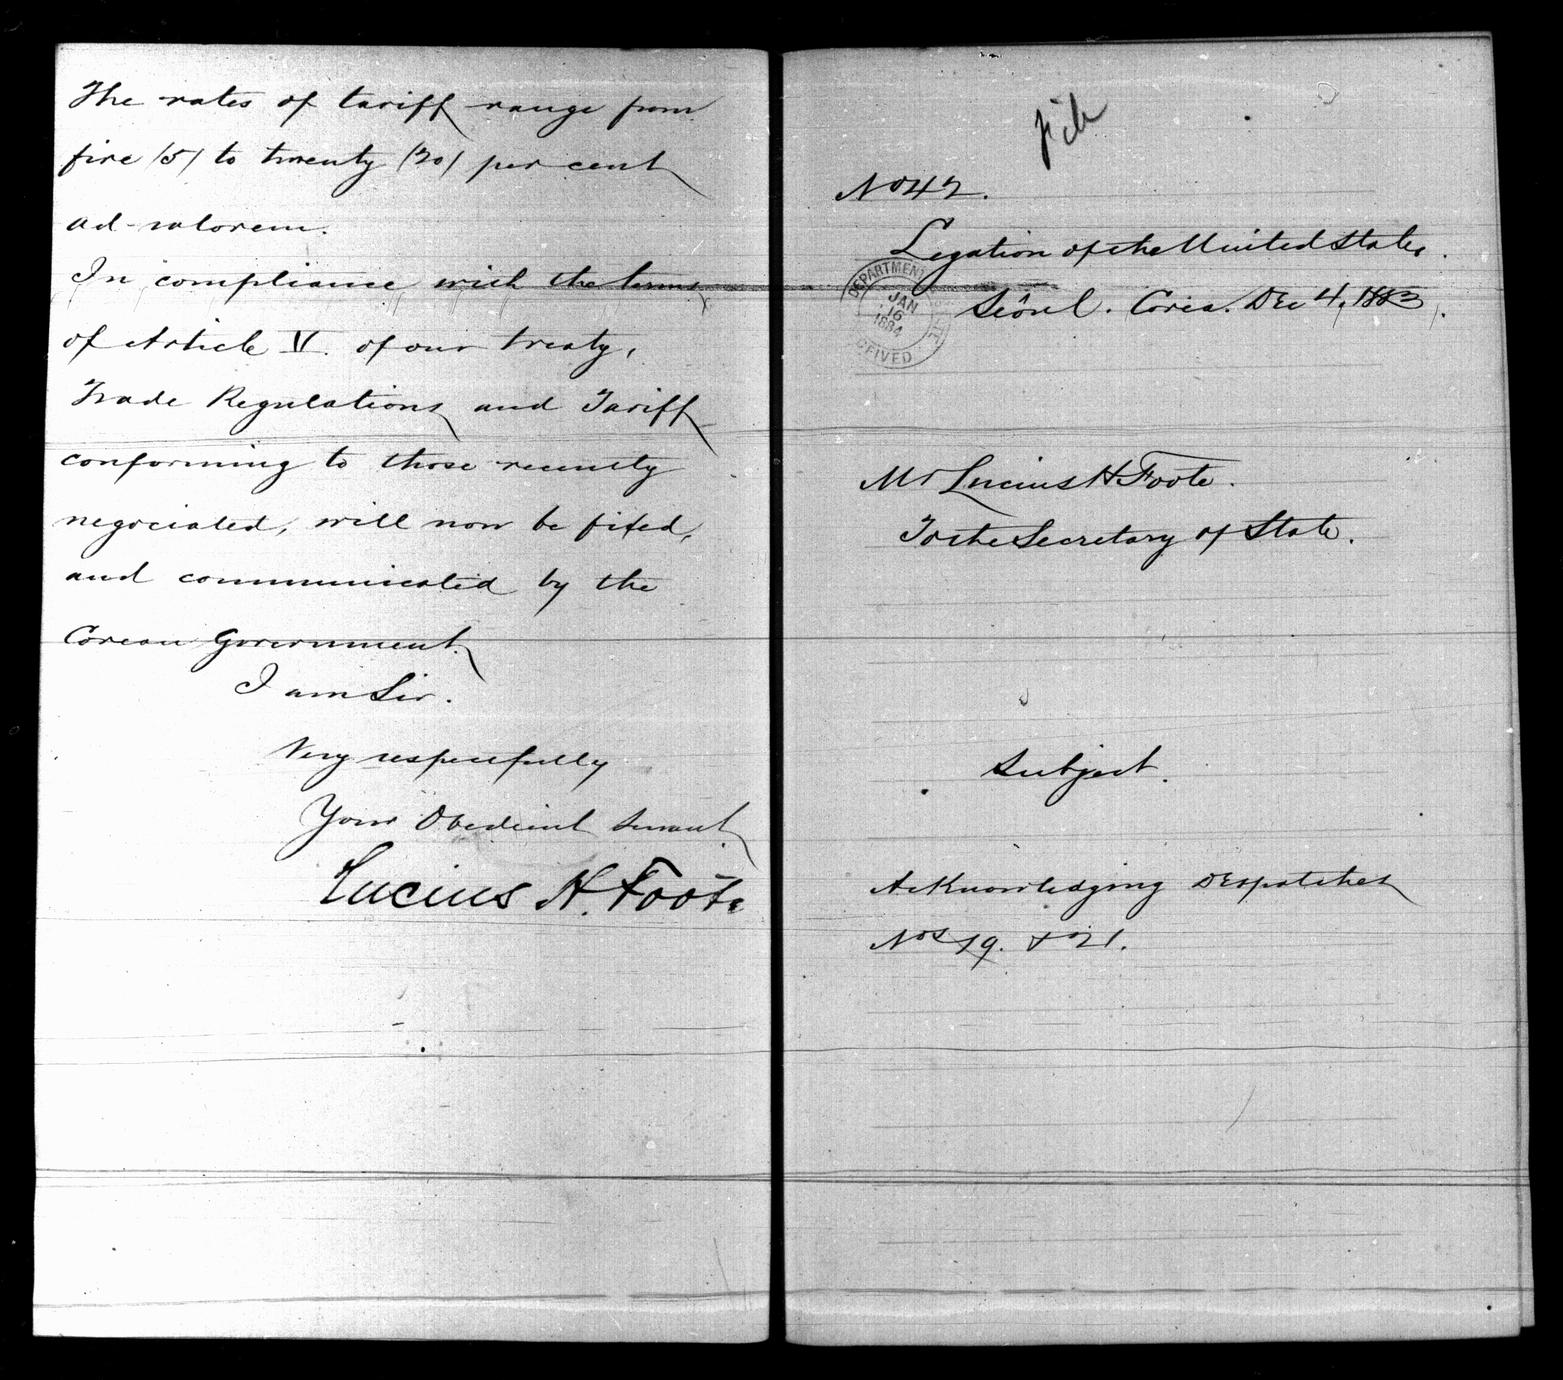 The rates of tariff range from
five (5) to twenty (20) per cent
ad-valorem.
In compliance with the terms
of Article V. of our treaty,
Trade Regulations and Tariff
conforming to those recently
negociated, will now be fixed,
and communicated by the
Corean Government.
I am Sir.
Very respectfully
Your Obedient Servant
Lucius H. Foote
file
No 42.
Legation of the United States.
Seôul. Corea. Dec 4, 1883.
DEPARTMENT STATE
JAN
16
1884
RECEIVED
Mr Lucius H Foote.
To the Secretary of State.
Subject.
Acknowledging Despatches
Nos 19. & 21.